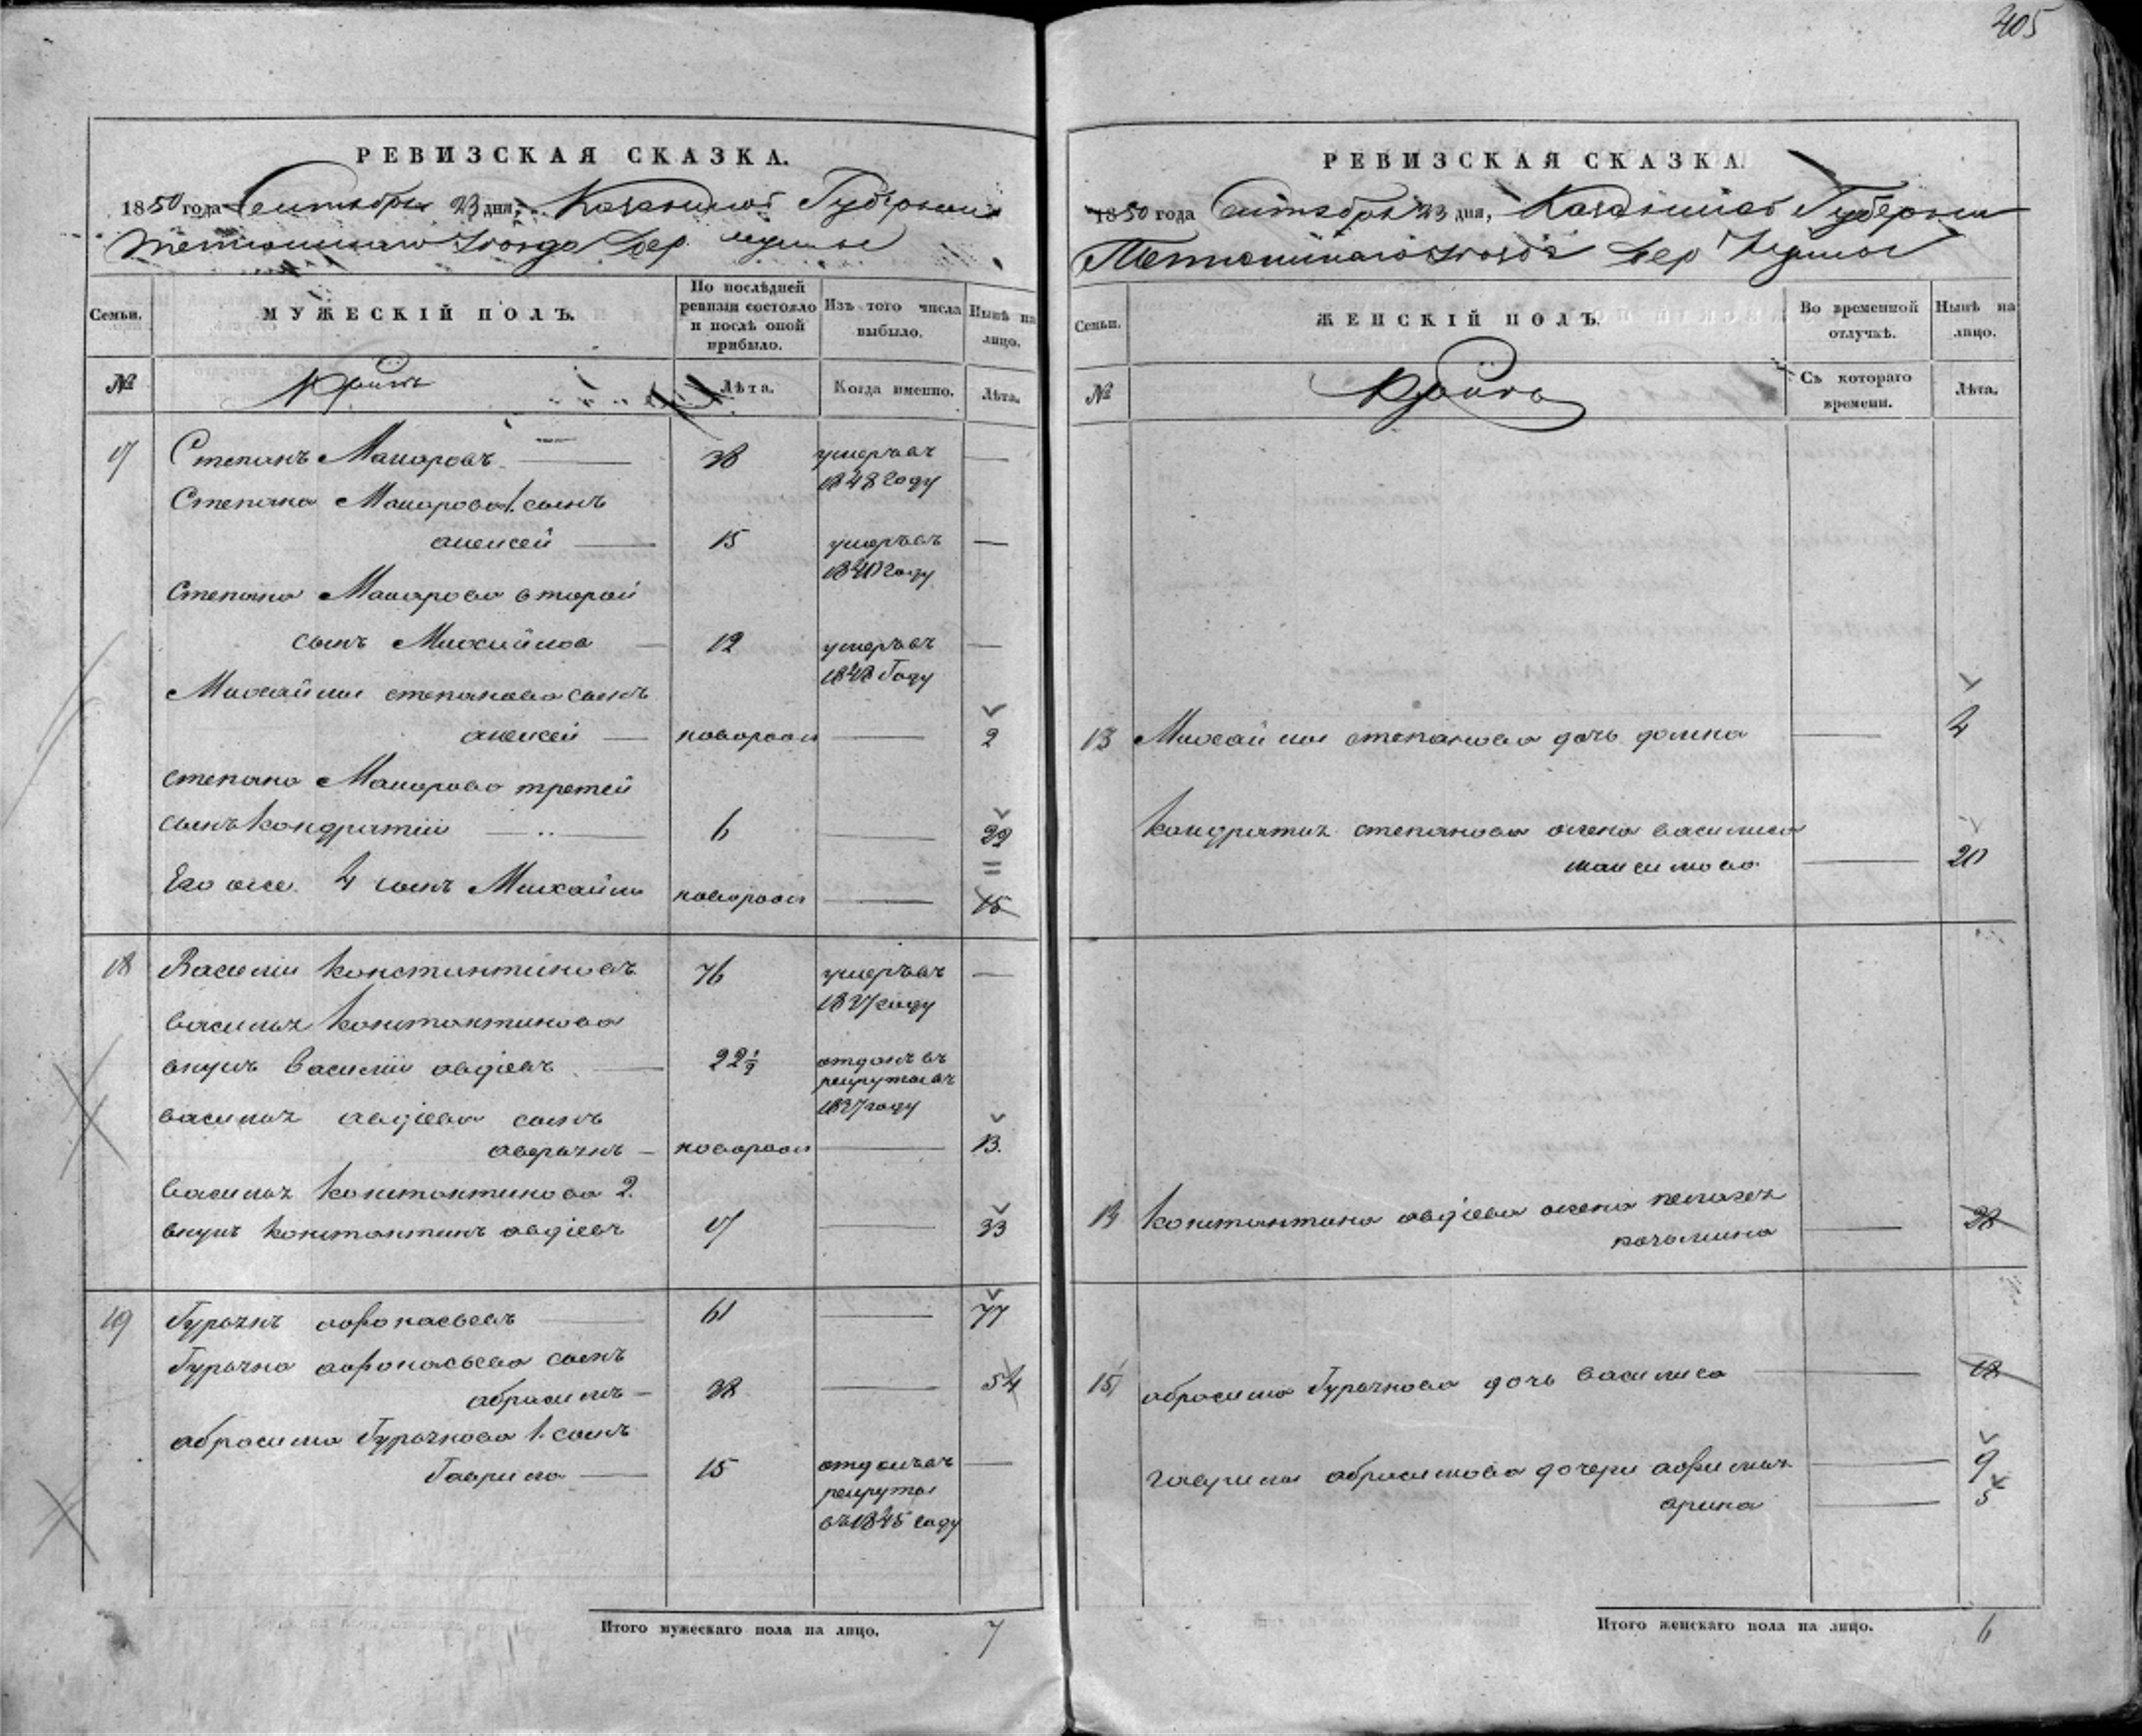 405
РЕВИЗСКАЯ СКАЗКА.
1850 года Сентября 23 дня, Казанской Губернии
Тетюшскаго Уезда Дер.
Семьи.
МУЖЕСКІЙ ПОЛЪ.
По послѣдней ревизіи состояло и послѣ оной прибыло.
Изъ того числа выбыло.
Нынѣ на лицо.
№
Лѣта.
Когда именно.
Лѣта.
17 Степанъ Макаровъ 38 умеръ въ
1848 году
Степана Макарова 1. сынъ
алексей 15 умеръ въ
1840 году
Степана Макарова второй
сынъ Михайла 12 умеръ въ
1848 Году
Михайлы степанова сынъ
алексей новорож 2
степана Макарова третей
сынъ кондратий 6 22
Его же 4 сынъ Михайла новорож 15
18 Василии константиновъ 76 умеръ въ
1837 году
василья константинова
внукъ василии авдіевъ 22½ отданъ въ
рекруты въ
1837 году
василья авдіева сынъ
аверьянъ новорож 13.
василья константинова 2.
внукъ константинъ авдіевъ 17 33
19 Гурьянъ афонасьевъ 61 77
Гурьяна афонасьева сынъ
абросимъ 38 54
абросима Гурьянова 1. сынъ
Гаврила 15 отданъ въ
рекруты
въ 1845 году
Итого мужескаго пола на лицо. 7
РЕВИЗСКАЯ СКАЗКА.
1850 года Сентября 23 дня, Казанской Губернии
Тетюшскаго Уезда Дер
Семьи.
ЖЕНСКІЙ ПОЛЪ.
Во временной отлучкѣ.
Нынѣ на лицо.
№
Съ котораго времени.
Лѣта.
13 Михайлы степанова дочь домна 4
кондратья степанова жена василиса
максимова 20
константина авдіева жена пелагея
28
15 абросима Гурьянова дочь василиса 18
гаврилы абросимова дочери афимья 9
арина 5
Итого женскаго пола на лицо. 6